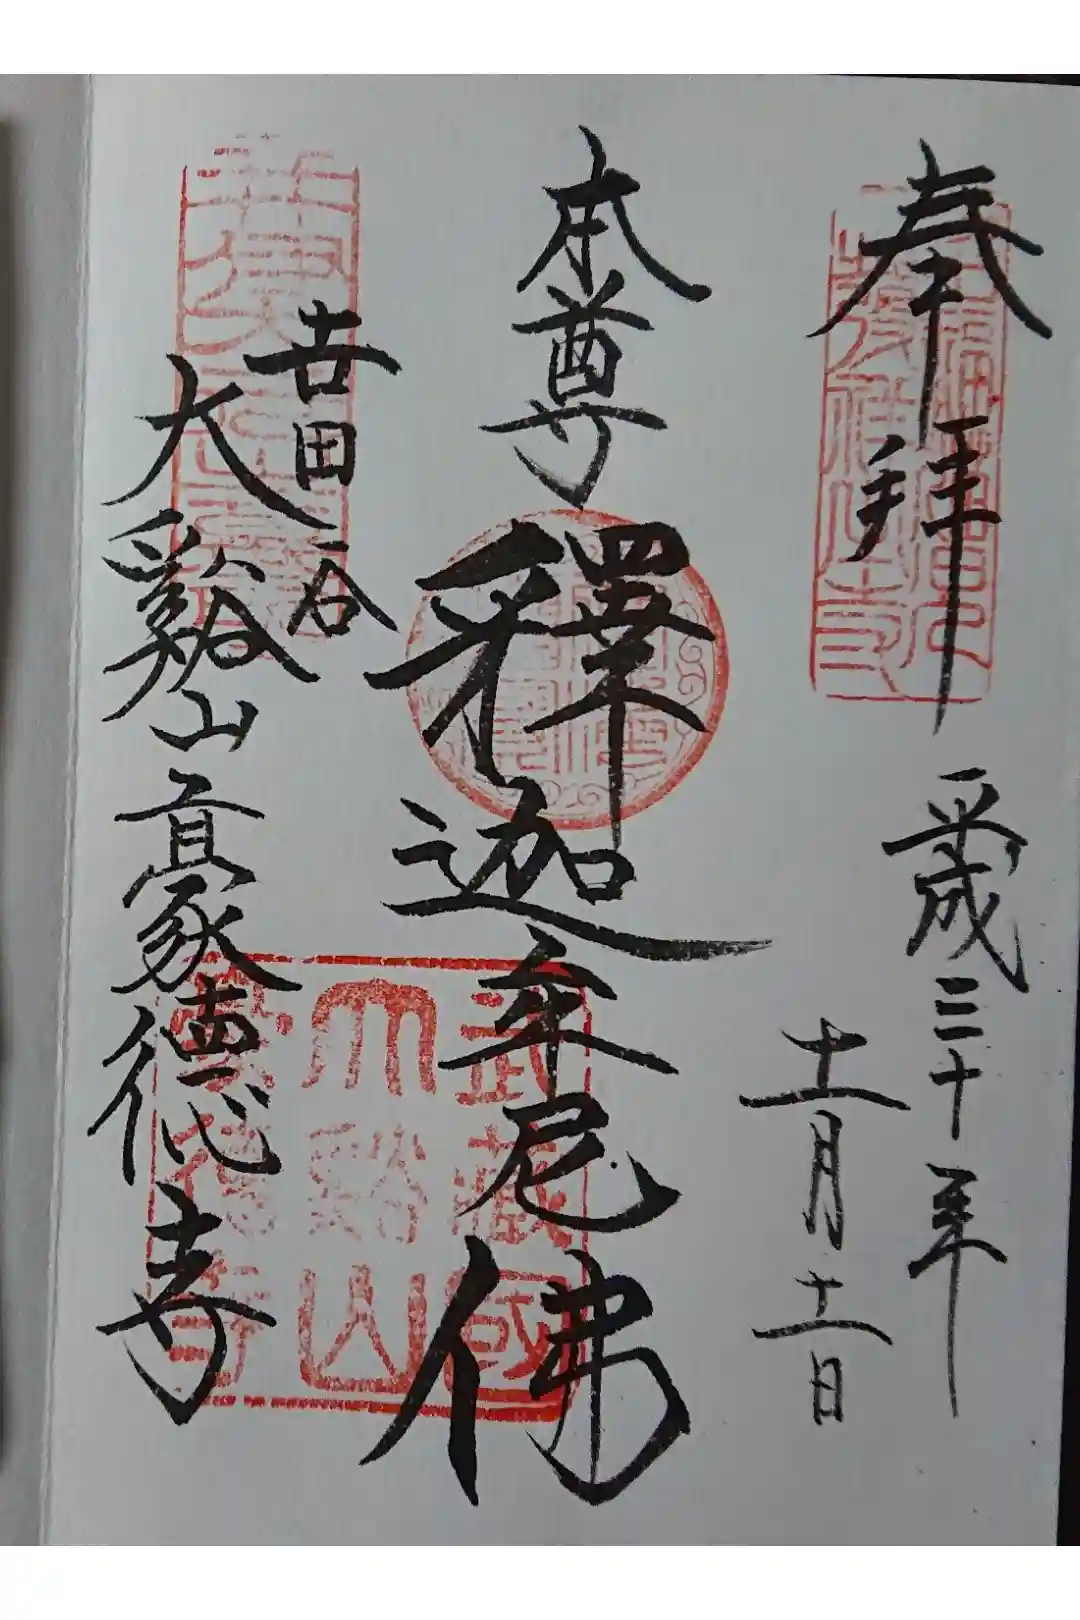 奉拝
平成三十年
十一月十一日
本尊
釋迦牟尼佛
世田谷
大谿山豪德寺
武藏國
大谿山
豪德寺